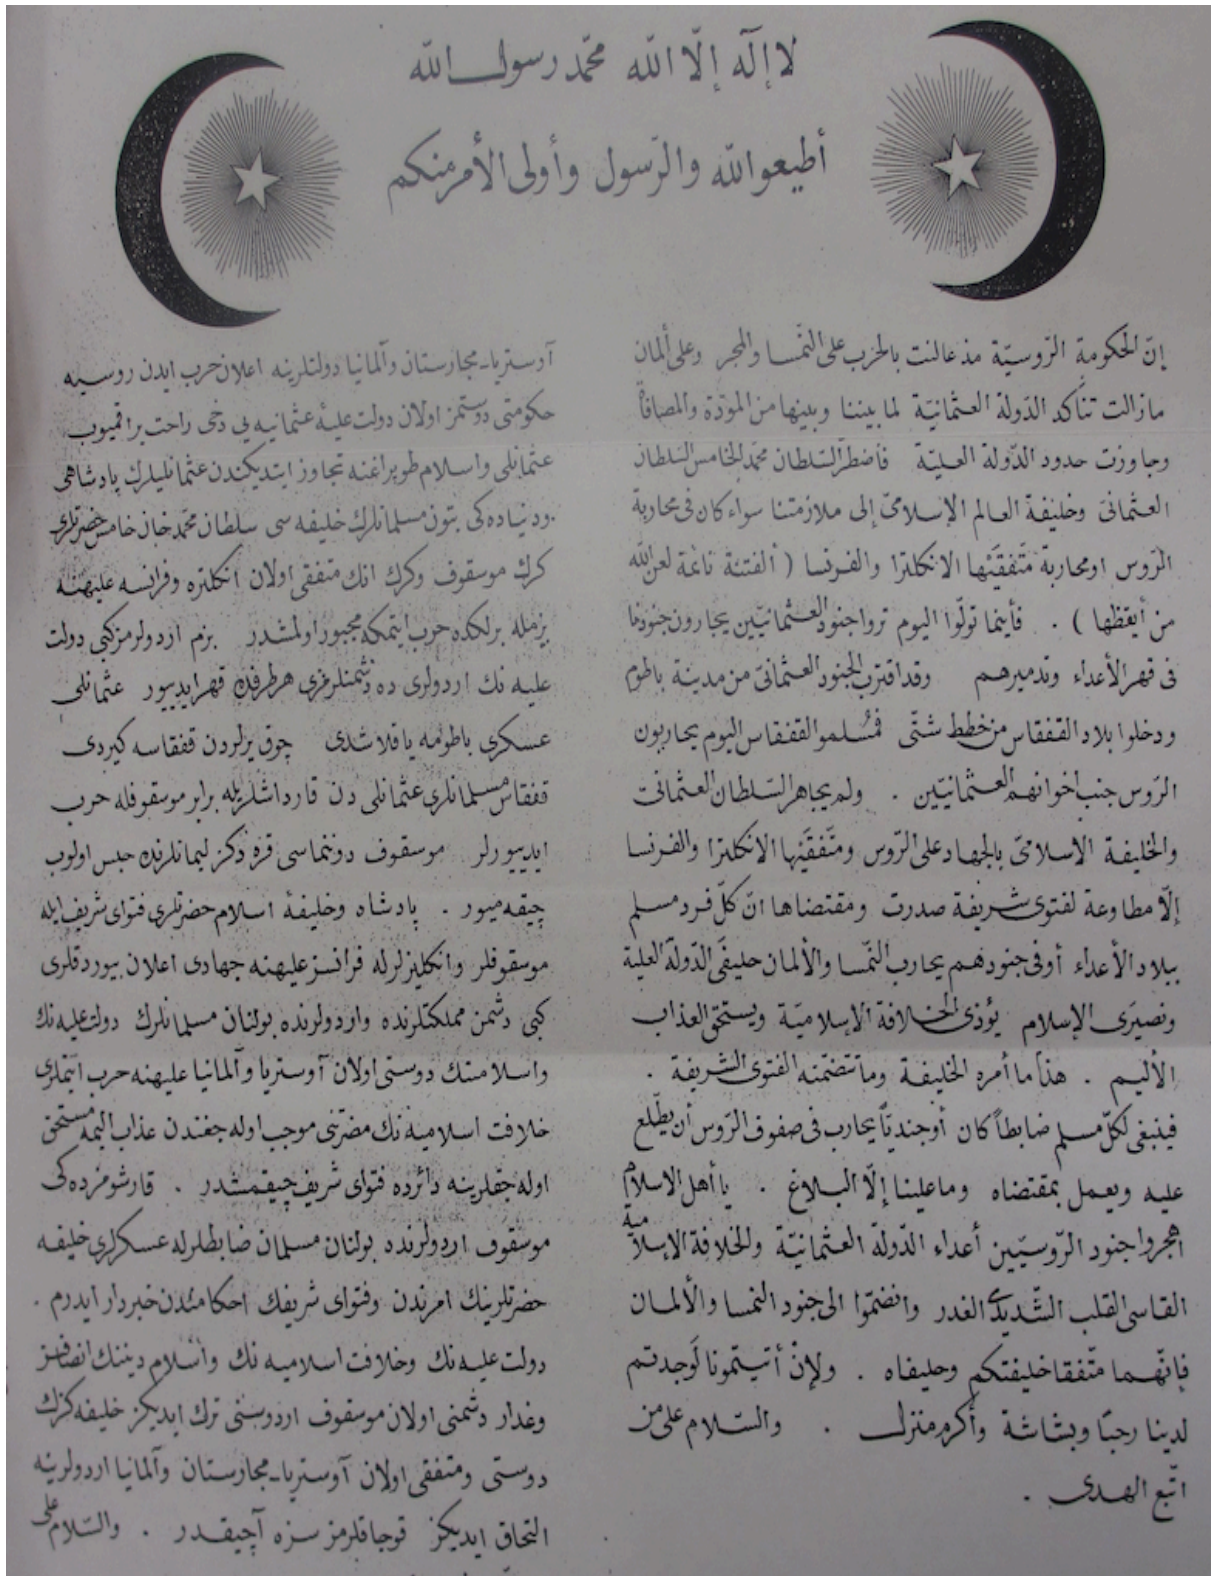 لا إله إلّا الله محمّد رسول الله
أطيعوا الله والرّسول وأولى الأمر منكم
إنّ الحكومة الرّوسيّة مذ عالنت بالحرب على النّمسا والمجر وعلى ألمان
مازالت تناكد الدّولة العثمانيّة لما بيننا وبينها من المودّة والمصافاة
وجاوزت حدود الدّولة العليّة فأضطرّ السّلطان محمّد الخامس السّلطان
العثمانىّ وخليفة العالم الإسلامىّ إلى ملازمتنا سواء كان فى محاربة
الرّوس او محاربة متّفقَيْها الانكلترا والفرنسا ( ألفتنة نائمة لعن الله
من أيقظها ) . فأينما تولّوا اليوم تروا جنود العثمانيّين يجارون جنودنا
فى قهر الأعداء وتدميرهم وقد اقترب الجنود العثمانىّ من مدينة باطوم
ودخلوا بلاد القفقاس من خطط شتّى فمُسلمو القفقاس اليوم يحاربون
الرّوس جنب اخوانهم العثمانيّين . ولم يجاهر السّلطان العثمانىّ
والخليفة الاسلامىّ بالجهاد على الرّوس ومتّفقَيْها الانكلترا والفرنسا
إلّا مطاوعة لفتوى شريفة صدرت ومقتضاها انّ كلّ فرد مسلم
ببلاد الأعداء أو فى جنودهم يحارب النّمسا والألمان حليفَى الدّولة العليّة
ونصيرَى الإسلام يؤذى الخلافة الإسلاميّة ويستحقّ العذاب
الأليم . هذا ما أمره الخليفة وما تتضمّنه الفتوى الشّريفة .
فينبغى لكلّ مسلم ضابطاً كان أو جنديّاً يحارب فى صفوف الرّوس أن يطّلع
عليه ويعمل بمقتضاه وما علينا إلّا البلاغ . يا أهل الاسلام
اهجروا جنود الرّوسيّين أعداء الدّولة العثمانيّة والخلافة الإسلاميّة
القاسى القلب الشّديدى الغدر وانضمّوا الى جنود النمسا والألمان
فإنّهما متّفقا خليفتكم وحليفاه . ولإنْ أتيتمونا لَوجدتم
لدينا رحبًا وبشاشة وأكرم منزل . والسّلام على من
اتّبع الهدى .
آوستريا-مجارستان وآلمانيا دولتلرينه اعلان حرب ايدن روسيه
حكومتى دوستمز اولان دولت عليهٔ عثمانيه يى دخى راحت براقميوب
عثمانلى واسلام طوپراغنه تجاوز ايتديكندن عثمانليلرك پادشاهى
ودنياده كى بتون مسلمانلرك خليفه سى سلطان محمّد خان خامس حضرتلرى
كرك موسقوف وكرك انك متفقى اولان انكلتره وفرانسه عليهنه
بزمله برلكده حرب ايتمكه مجبور اولمشدر بزم اردولرمز كبى دولت
عليه نك اردولرى ده دشمنلرمزى هر طرفده قهر ايدييور عثمانلى
عسكرى باطومه ياقلاشدى چوق يرلردن قفقاسه كيردى
قفقاس مسلمانلرى عثمانلى دن قارداشلريله برابر موسقوفله حرب
ايدييورلر موسقوف دوننماسى قره دكز ليمانلرنده حبس اولوب
چيقه ميور . پادشاه وخليفهٔ اسلام حضرتلرى فتواى شريف ايله
موسقوفلر وانكليزلرله فرانسز عليهنه جهادى اعلان بيوردقلرى
كبى دشمن مملكتلرنده واردولرنده بولنان مسلمانلرك دولت عليه نك
واسلامتك دوستى اولان آوستريا وآلمانيا عليهنه حرب ايتملرى
خلافت اسلاميه نك مضرّتنى موجب اوله جغندن عذاب اليمه مستحق
اوله جقلرينه دائرده فتواى شريف چيقمشدر . قارشومزده كى
موسقوف اردولرنده بولنان مسلمان ضابطلرله عسكرلرى خليفه
حضرتلرينك امرندن وفتواى شريفك احكامندن خبردار ايدرم .
دولت عليه نك وخلافت اسلاميه نك واسلام ديننك انصافسز
وغدار دشمنى اولان موسقوف اردوسنى ترك ايديكز خليفه كزك
دوستى ومتفقى اولان آوستريا-مجارستان وآلمانيا اردولرينه
التحاق ايديكز قوجاقلرمز سزه آچيقدر . والسّلام على